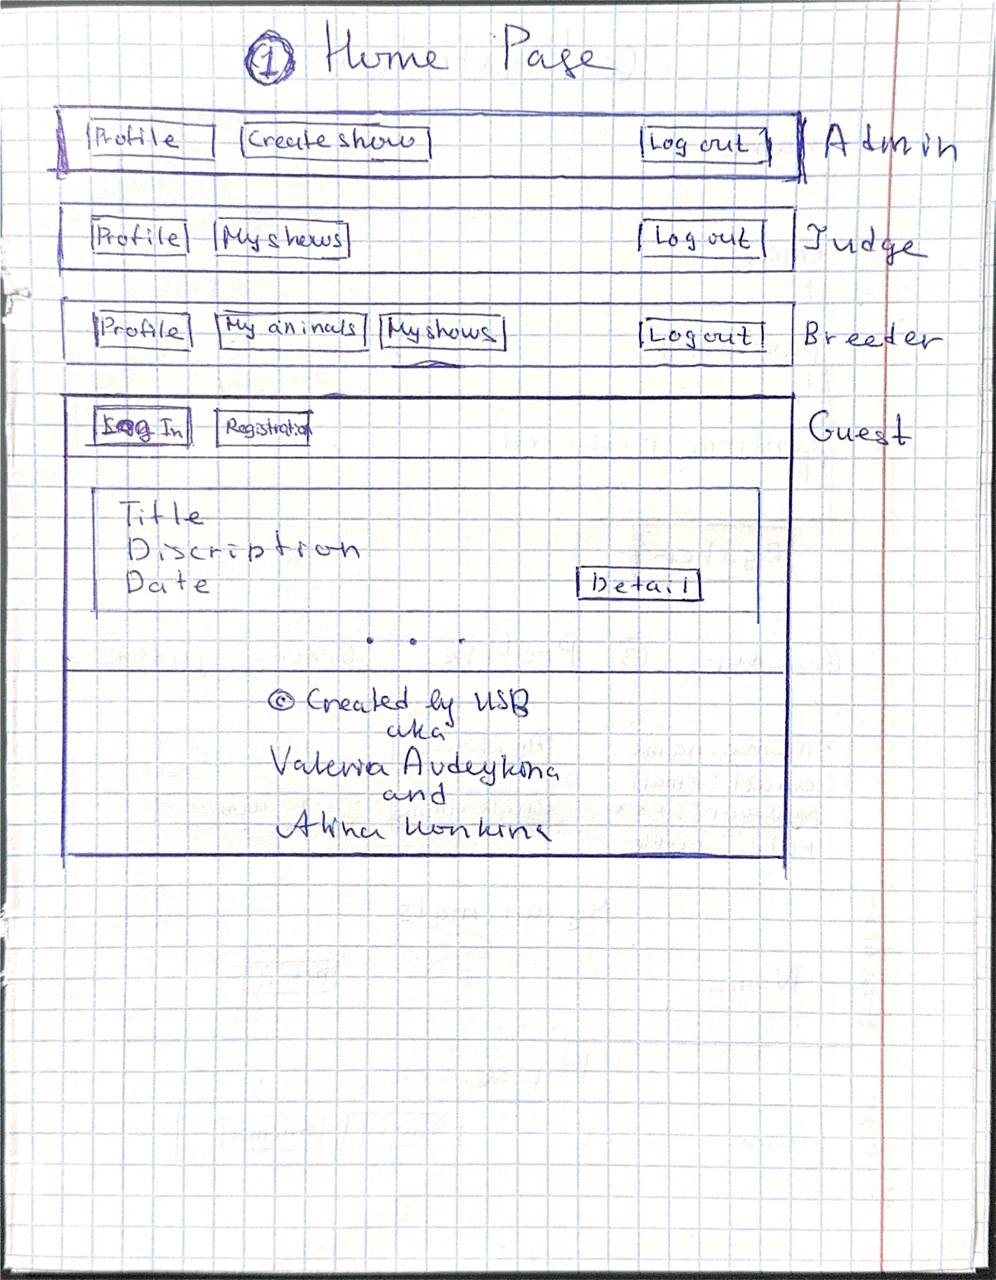 1 Home Page
Profile Create show Log out Admin
Profile My shows Log out Judge
Profile My animals My shows Log out Breeder
Log In Registration Guest
Title
Discription
Date
Detail
© Created by USB
aka
Valeria Avdeykina
and
Alina